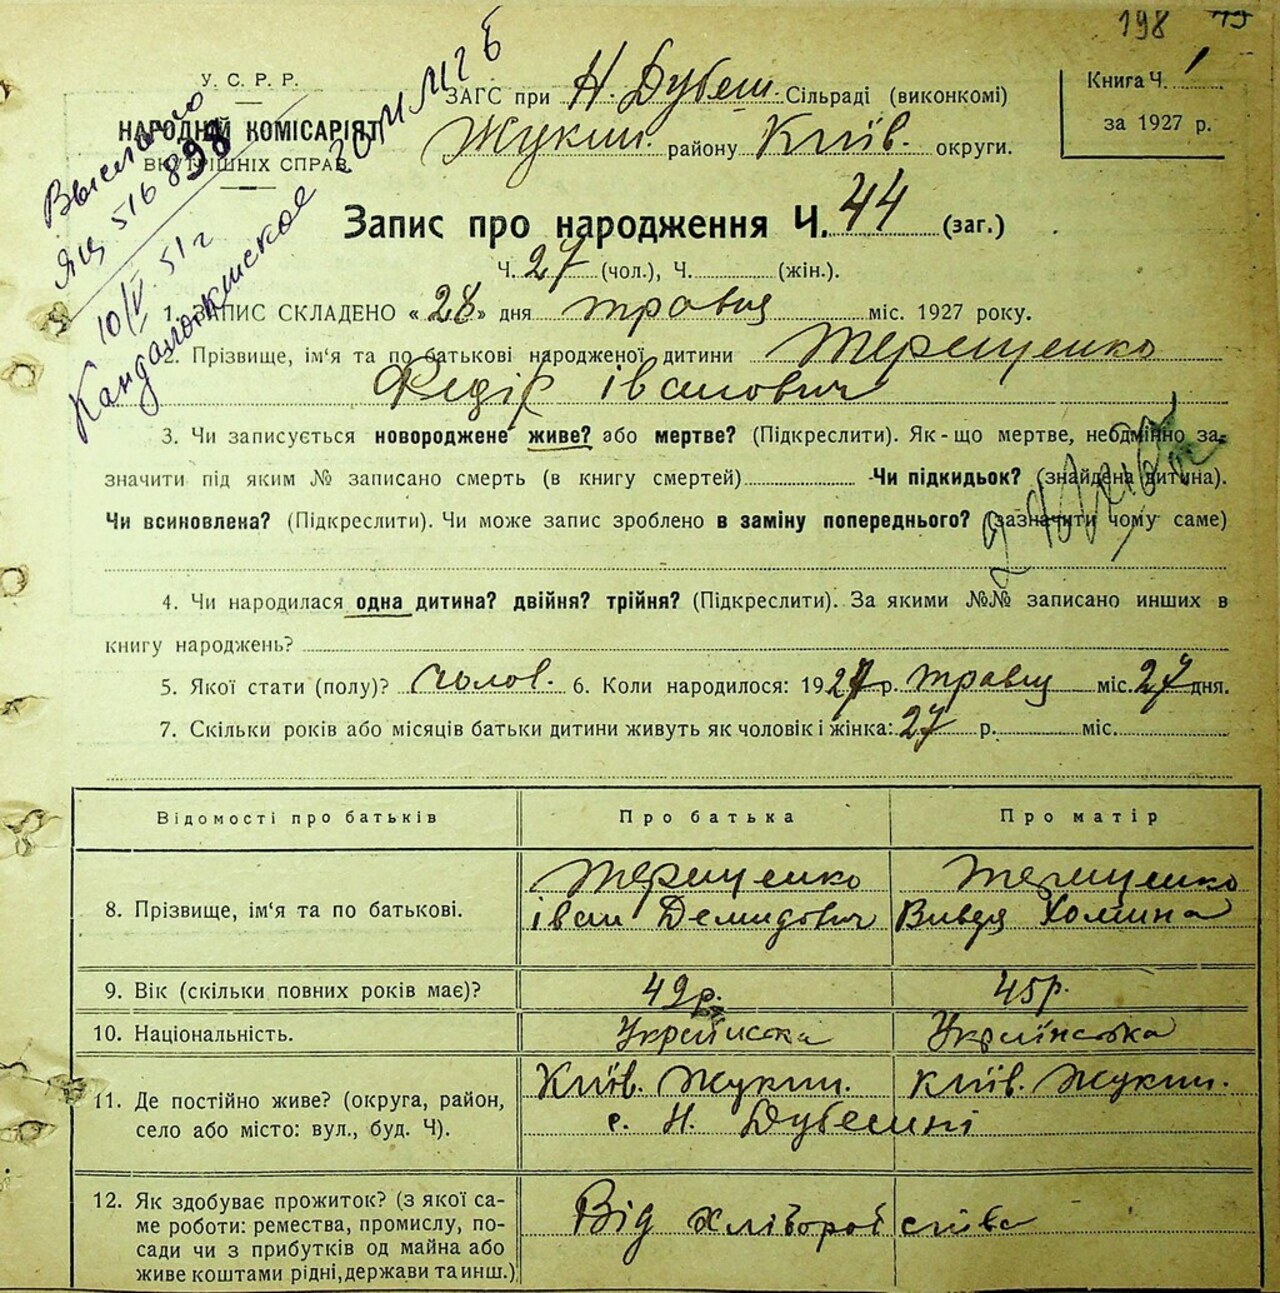 198
У. С. Р. Р.
НАРОДНІЙ КОМІСАРІЯТ
ВНУТРІШНІХ СПРАВ
ЗАГС при Н. Дубеш. Сільраді (виконкомі)
Жукин. району Київ. округи.
Книга Ч. 1
за 1927 р.
Выслано
ЯЦ 516898
10/V. 51 г
Кандалакшское ГОМ МГБ
Запис про народження Ч. 44 (заг.)
Ч. 27 (чол.), Ч. (жін.).
1. ЗАПИС СКЛАДЕНО « 28 » дня травня міс. 1927 року.
2. Прізвище, ім‘я та по батькові народженої дитини Терещенко
Федір Іванович
3. Чи записується новороджене живе? або мертве? (Підкреслити). Як-що мертве, неодмінно за-
значити під яким № записано смерть (в книгу смертей) Чи підкидьок? (знайдена дитина).
Чи всиновлена? (Підкреслити). Чи може запис зроблено в заміну попереднього? (зазначити чому саме)
4. Чи народилася одна дитина? двійня? трійня? (Підкреслити). За якими №№ записано инших в
книгу народжень?
5. Якої стати (полу)? чолов. 6. Коли народилося: 1927 р. травня міс. 27 дня.
7. Скільки років або місяців батьки дитини живуть як чоловік і жінка: 27 р. міс.
Відомості про батьків Про батька Про матір
8. Прізвище, ім‘я та по батькові. Терещенко Іван Демидович Терещенко Вивдя Хомина
9. Вік (скільки повних років має)? 49р. 45р.
10. Національність. Украінска Українська
11. Де постійно живе? (округа, район, Київ. Жукин. Київ. Жукин.
село або місто: вул., буд. Ч). с. Н. Дубешні
12. Як здобуває прожиток? (з якої са- Від хліборобства
ме роботи: ремества, промислу, по-
сади чи з прибутків од майна або
живе коштами рідні, держави та инш.)